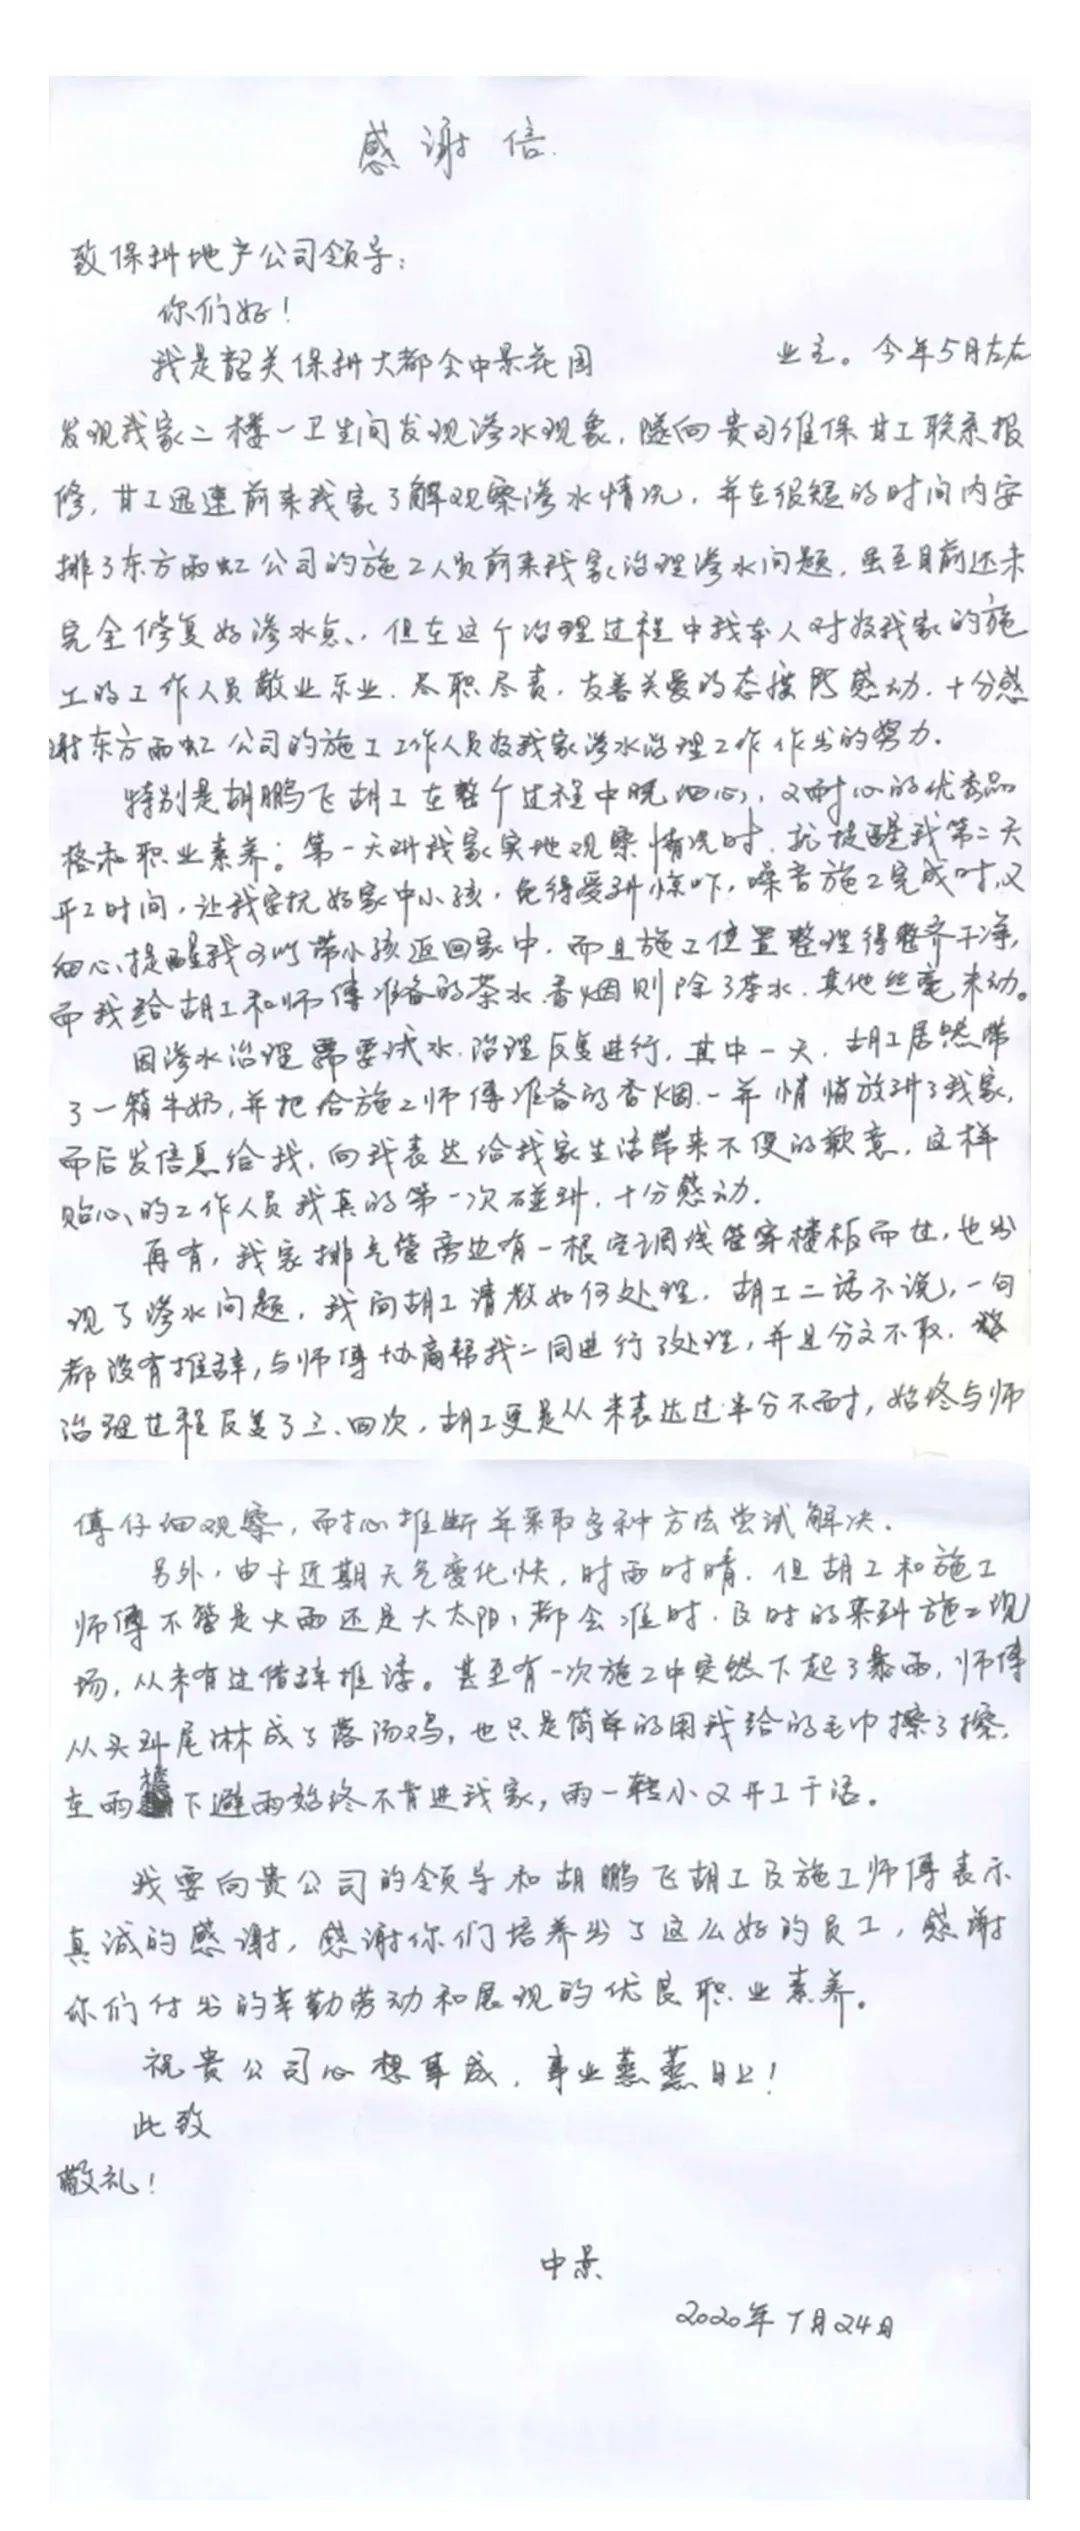 感谢信
致保利地产公司领导：
你们好！
我是韶关保利大都会中景花园 业主。今年5月左右
发现我家二楼一卫生间发现渗水现象，随向贵司维保甘工联系报
修，甘工迅速前来我家了解观察渗水情况，并在很短的时间内安
排了东方雨虹公司的施工人员前来我家治理渗水问题，虽至目前还未
完全修复好渗水点，但在这个治理过程中我本人对于我家的施
工的工作人员敬业乐业、尽职尽责，友善关爱的态度所感动，十分感
谢东方雨虹公司的施工工作人员为我家渗水治理工作作出的努力。
特别是胡鹏飞胡工在整个过程中既细心，又耐心的优秀品
格和职业素养；第一天到我家实地观察情况时，就提醒我第二天
开工时间，让我安抚好家中小孩，免得受到惊吓，噪音施工完成时，又
细心提醒我可以带小孩返回家中，而且施工位置整理得整齐干净，
而我给胡工和师傅准备的茶水、香烟则除了茶水，其他丝毫未动。
因渗水治理需要试水、治理反复进行，其中一天，胡工居然带
了一箱牛奶，并把给施工师傅准备的香烟一并悄悄放到了我家，
而后发信息给我，向我表达给我家生活带来不便的歉意，这样
贴心的工作人员我真的第一次碰到，十分感动。
再有，我家排气管旁边有一根空调线管穿楼板而过，也出
现了渗水问题，我向胡工请教如何处理，胡工二话不说，一句
都没有推辞，与师傅协商帮我一同进行了处理，并且分文不取，
治理过程反复了三、四次，胡工更是从未表达过半分不耐，始终与师
傅仔细观察，耐心推断并采取多种方法尝试解决。
另外，由于近期天气变化快，时雨时晴，但胡工和施工
师傅不管是大雨还是大太阳，都会准时、及时的来到施工现
场，从未有过借辞推诿。甚至有一次施工中突然下起了暴雨，师傅
从头到尾淋成了落汤鸡，也只是简单的用我给的毛巾擦了擦，
在雨搭下避雨始终不肯进我家，雨一转小又开工干活。
我要向贵公司的领导和胡鹏飞胡工及施工师傅表示
真诚的感谢，感谢你们培养出了这么好的员工，感谢
你们付出的辛勤劳动和展现的优良职业素养。
祝贵公司心想事成，事业蒸蒸日上！
此致
敬礼！
中景
2020年7月24日